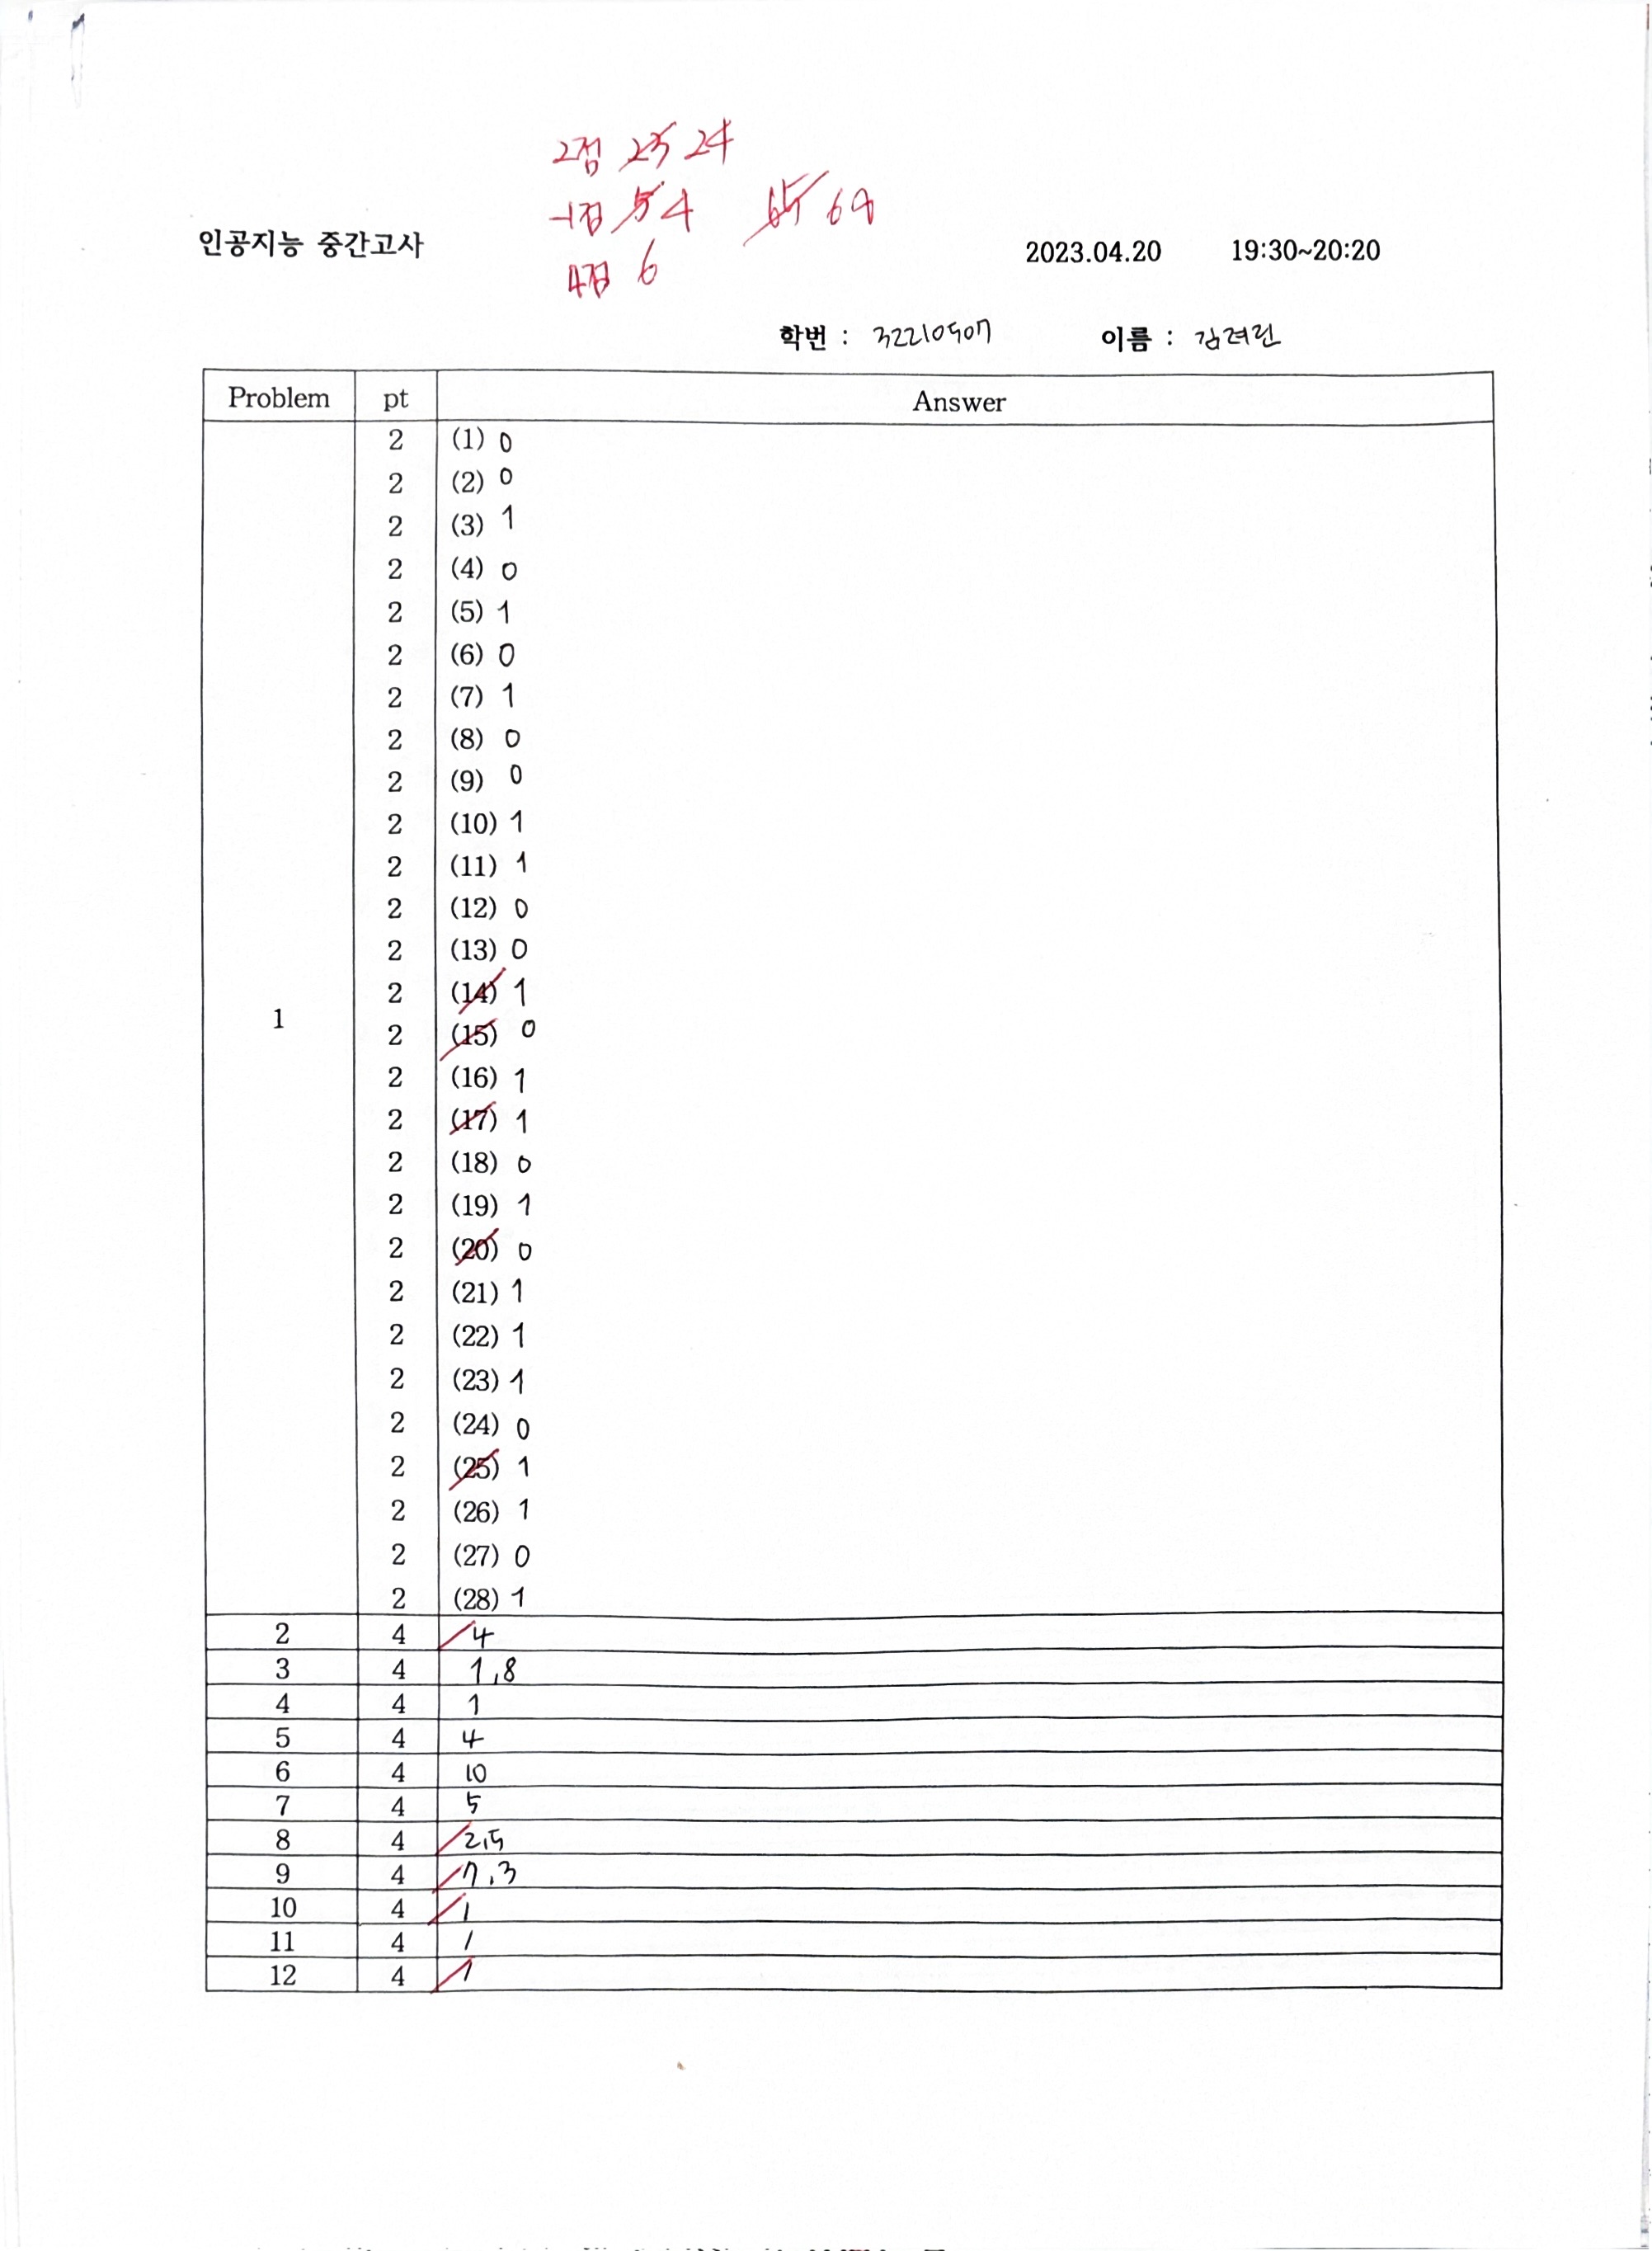 2점 23 24
-1점 5 4 65 68
4점 6
인공지능 중간고사 2023.04.20 19:30~20:20
학번 : 32210507 이름 : 김려린
Problem pt Answer
2 (1) 0
2 (2) 0
2 (3) 1
2 (4) 0
2 (5) 1
2 (6) 0
2 (7) 1
2 (8) 0
2 (9) 0
2 (10) 1
2 (11) 1
2 (12) 0
2 (13) 0
2 (14) 1
1
2 (15) 0
2 (16) 1
2 (17) 1
2 (18) 0
2 (19) 1
2 (20) 0
2 (21) 1
2 (22) 1
2 (23) 1
2 (24) 0
2 (25) 1
2 (26) 1
2 (27) 0
2 (28) 1
2 4 4
3 4 1,8
4 4 1
5 4 4
6 4 10
7 4 5
8 4 2,5
9 4 7,3
10 4 1
11 4 1
12 4 1